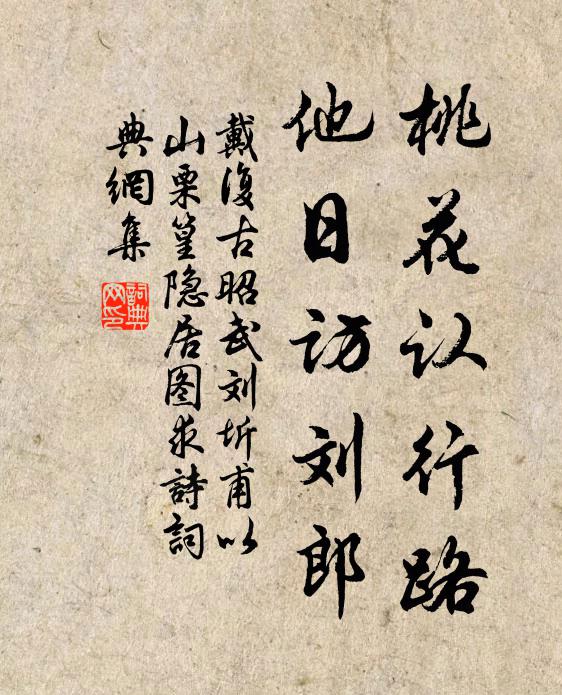 桃花认行路
他日访刘郎
戴復古昭武刘圻甫以
山栗篁隐居图求詩詞
典網集
詞典網印